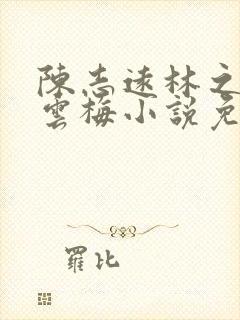 陳志遠林之
雲梅小說免
羅比